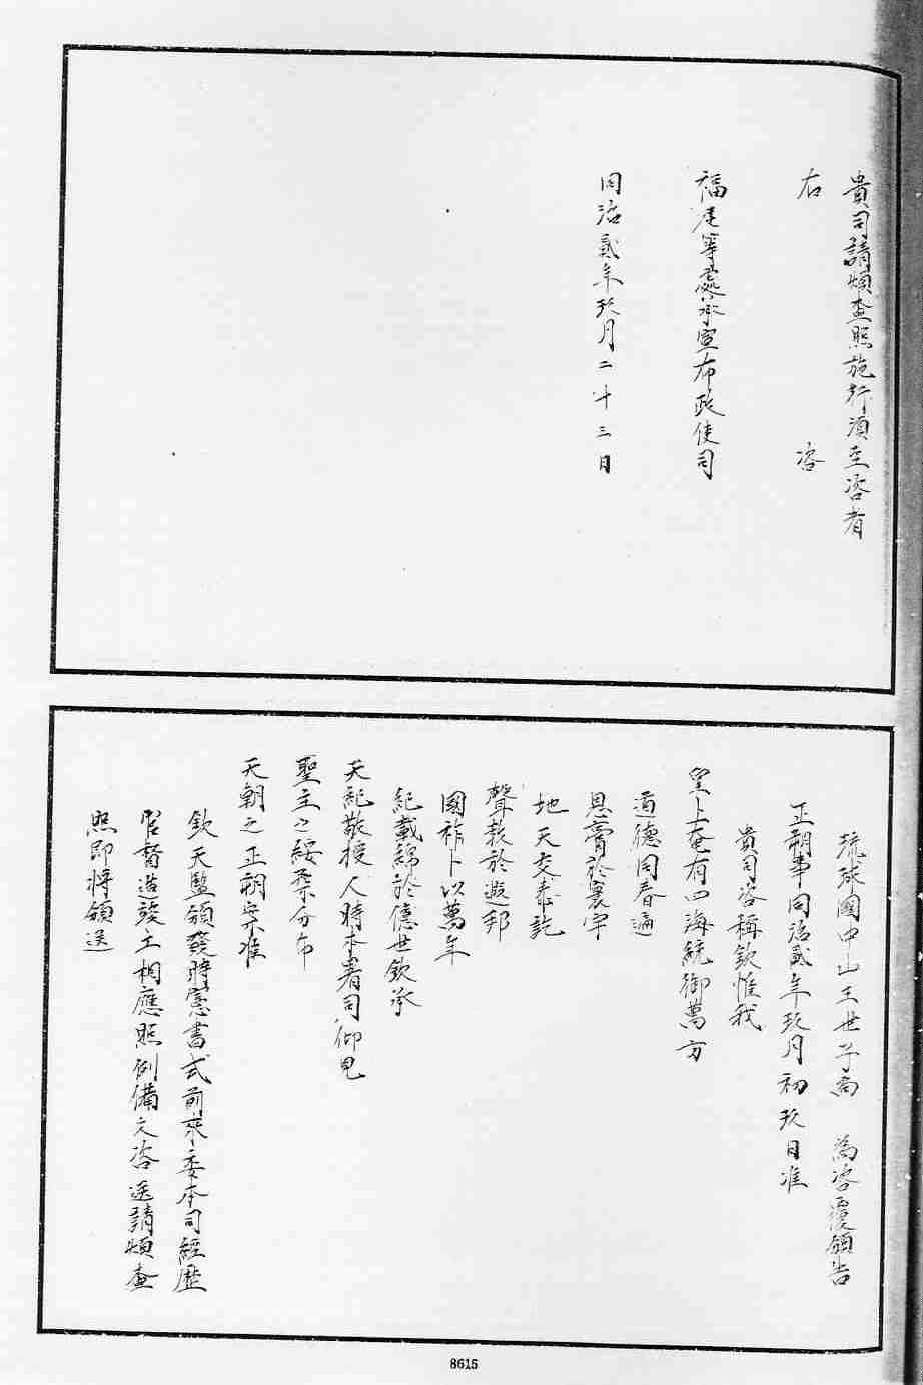 貴司請煩查照施行須至咨者
右　咨
福建等處承宣布政使司
同治貳年玖月二十三日
琉球國中山王世子尚　為咨覆頒告
正朔事同治貳年玖月初玖日准
貴司咨稱欽惟我
皇上奄有四海統御萬方
道德同春遍
恩膏於寰宇
地天交泰訖
聲教於遐邦
國祚卜以萬年
紀載綿於億世欽承
天紀敬授人時本署司仰見
聖主之綏柔分布
天朝之正朔案准
欽天監頒發時憲書式前來委本司經歷
督造竣工相應照例備文咨送請煩查
照即將頒送
8615